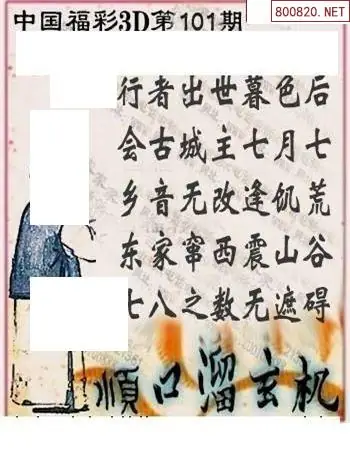 中国福彩3D第101期
800820.NET
行者出世暮色后
会古城主七月七
乡音无改逢饥荒
东家窜西震山谷
七八之数无遮碍
顺口溜玄机